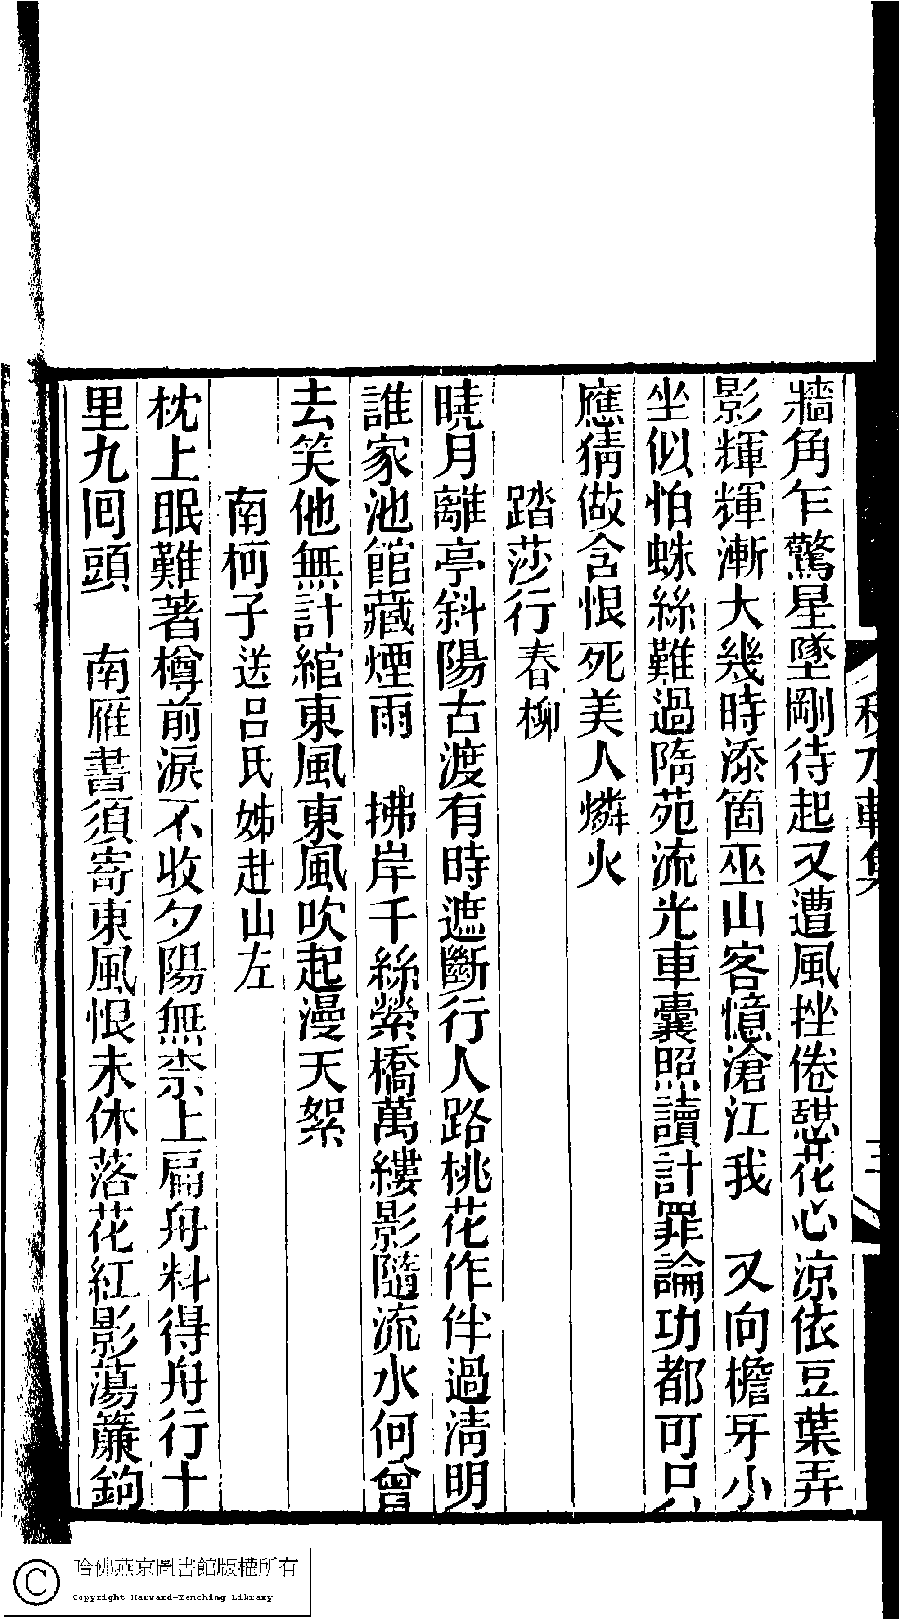 牆角乍驚星墜剛待起又遭風挫倦憇花心涼依豆葉弄
影輝輝漸大幾時添箇巫山客憶滄江我　又向檐牙小
坐似怕蛛絲難過隋苑流光車囊照讀計罪論功都可只
應猜做含恨死美人燐火
踏莎行春柳
曉月離亭斜陽古渡有時遮斷行人路桃花作伴過清明
誰家池館藏煙雨　拂岸千絲縈橋萬縷影隨流水何曾
去笑他無計綰東風東風吹起漫天絮
南柯子送呂氏姊赴山左
枕上眠難著樽前淚不收夕陽無柰上扁舟料得舟行十
里九囘頭　南雁書須寄東風恨未休落花紅影蕩簾鉤
哈佛燕京圖書館版權所有
Copyright Harvard-Yenching Library